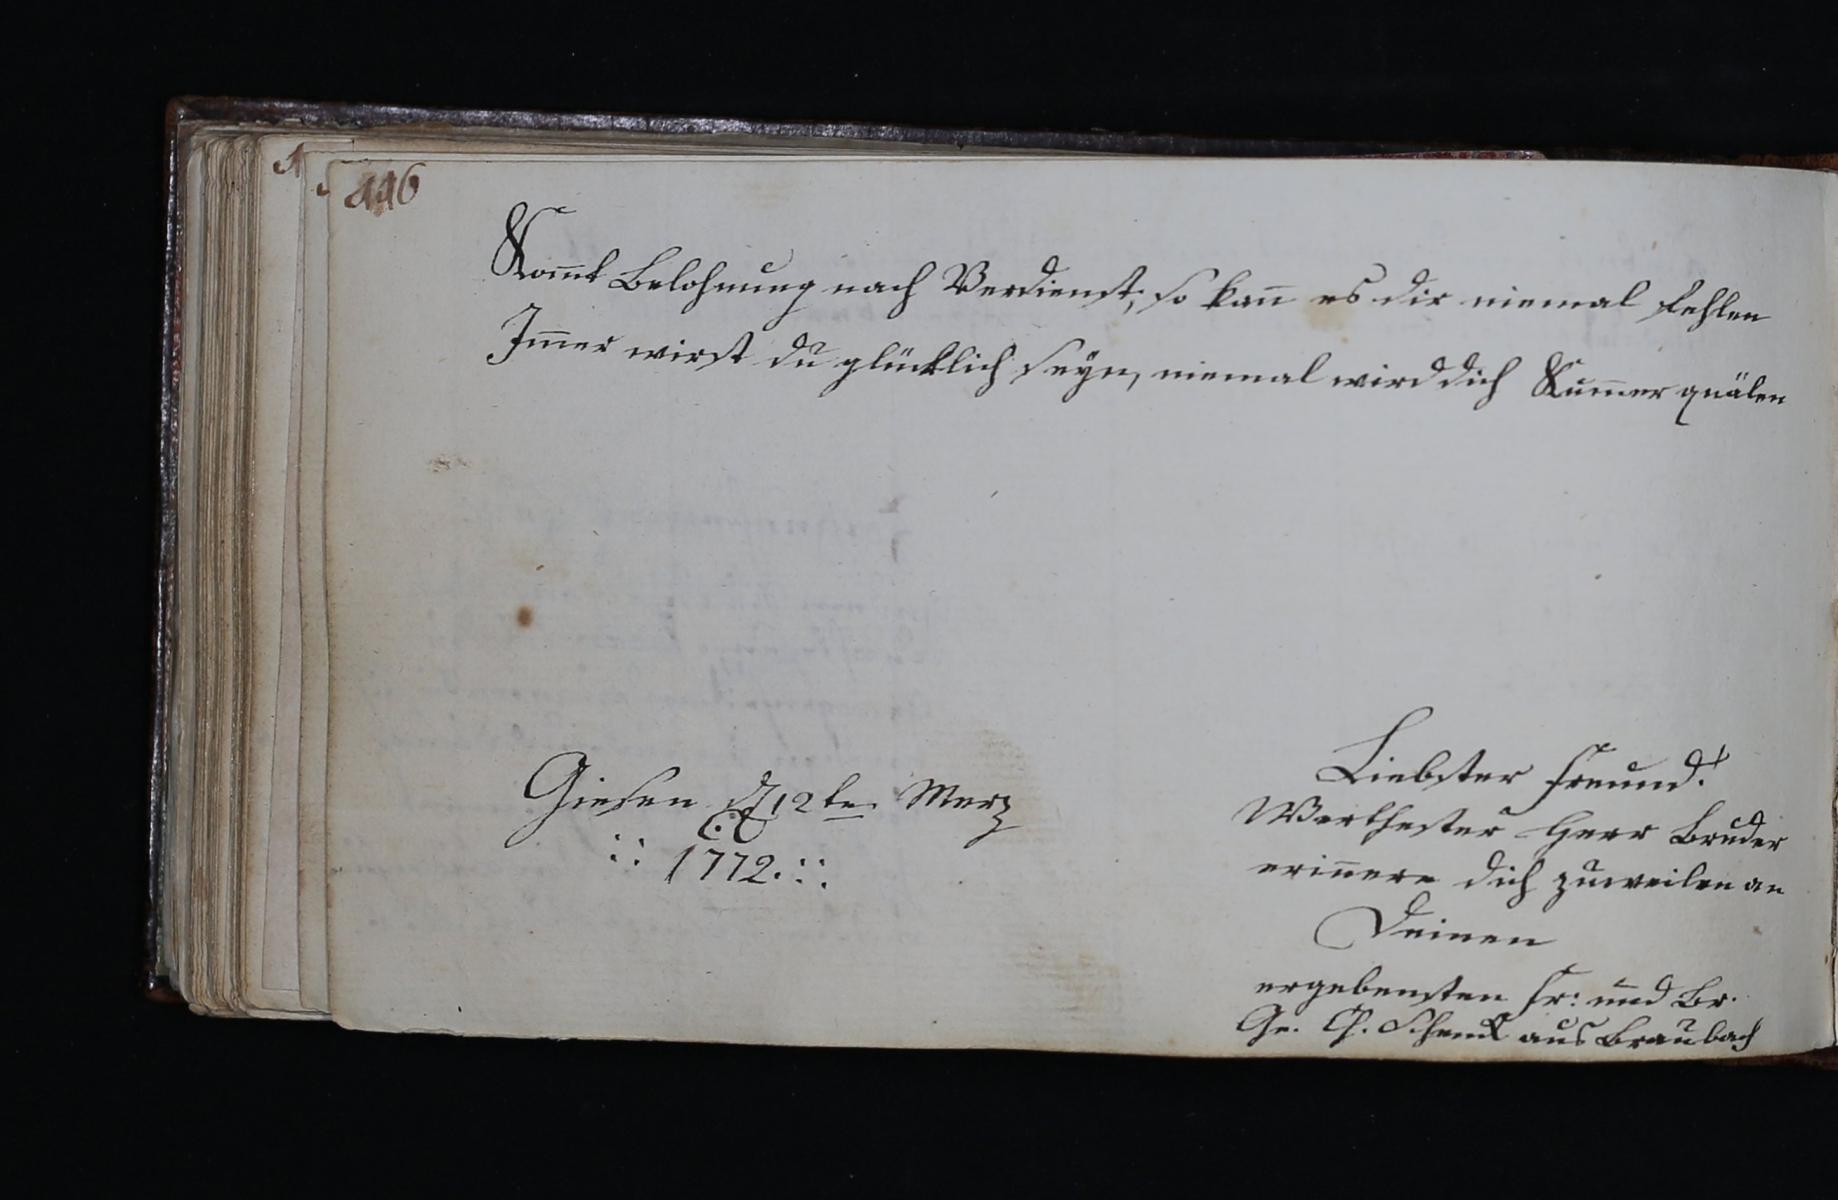 446
Kom̅t Belohnung nach Verdienst; so kan̅ es dir niemal fehlen
Im̅er wirst du glücklich seÿn, niemal wird dich Kum̅er quälen
Giesen d 12ten Merz
1772.
Liebster Freund!
Werthester Herr Bruder
erin̅ere dich zuweilen an
Deinen
ergebensten Fr: und Br.
Ge. Ch. Schenck aus Braubach